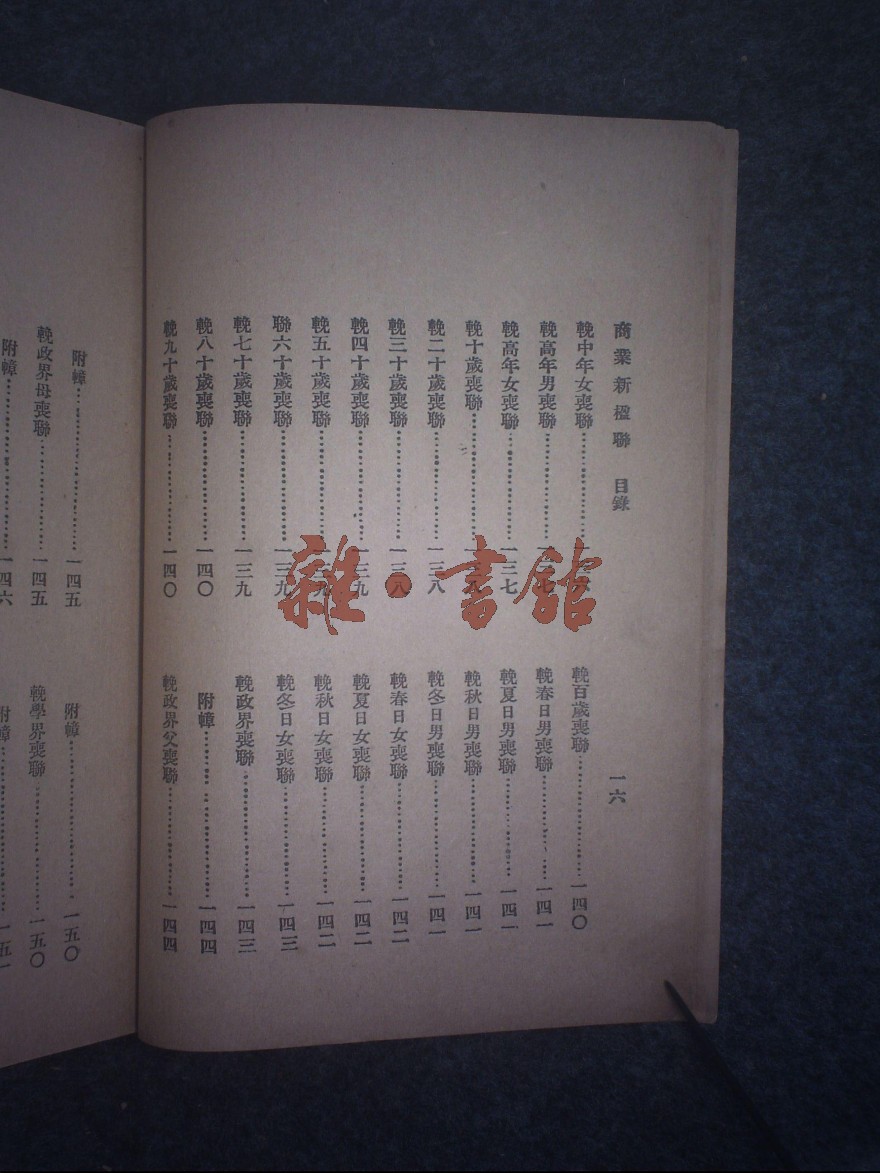 商業新楹聯 目錄 一六
輓中年女喪聯
輓高年男喪聯
輓高年女喪聯 一三七
輓十歲喪聯
輓二十歲喪聯 一三八
輓三十歲喪聯 一三八
輓四十歲喪聯 一三九
輓五十歲喪聯 一三九
聯六十歲喪聯 一三九
輓七十歲喪聯 一三九
輓八十歲喪聯 一四〇
輓九十歲喪聯 一四〇
輓百歲喪聯 一四〇
輓春日男喪聯 一四一
輓夏日男喪聯 一四一
輓秋日男喪聯 一四一
輓冬日男喪聯 一四一
輓春日女喪聯 一四二
輓夏日女喪聯 一四二
輓秋日女喪聯 一四二
輓冬日女喪聯 一四三
輓政界喪聯 一四三
附幛 一四四
輓政界父喪聯 一四四
附幛 一四五
輓政界母喪聯 一四五
附幛 一四六
附幛 一五〇
輓學界喪聯 一五〇
附幛 一五一
雜·書館